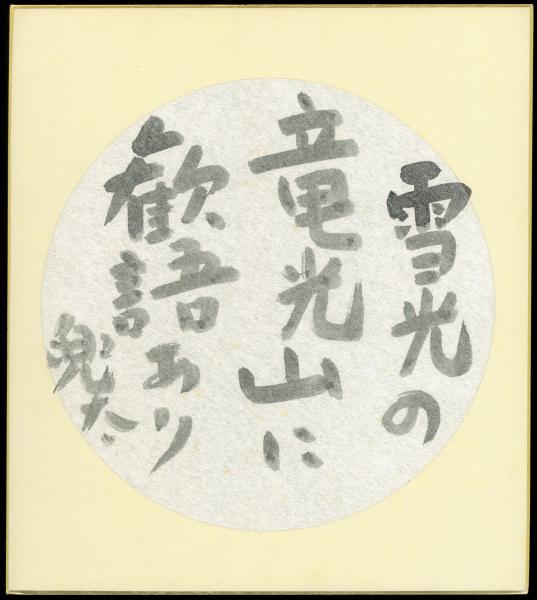 雪光の
竜光山に
歓語あり
兜太